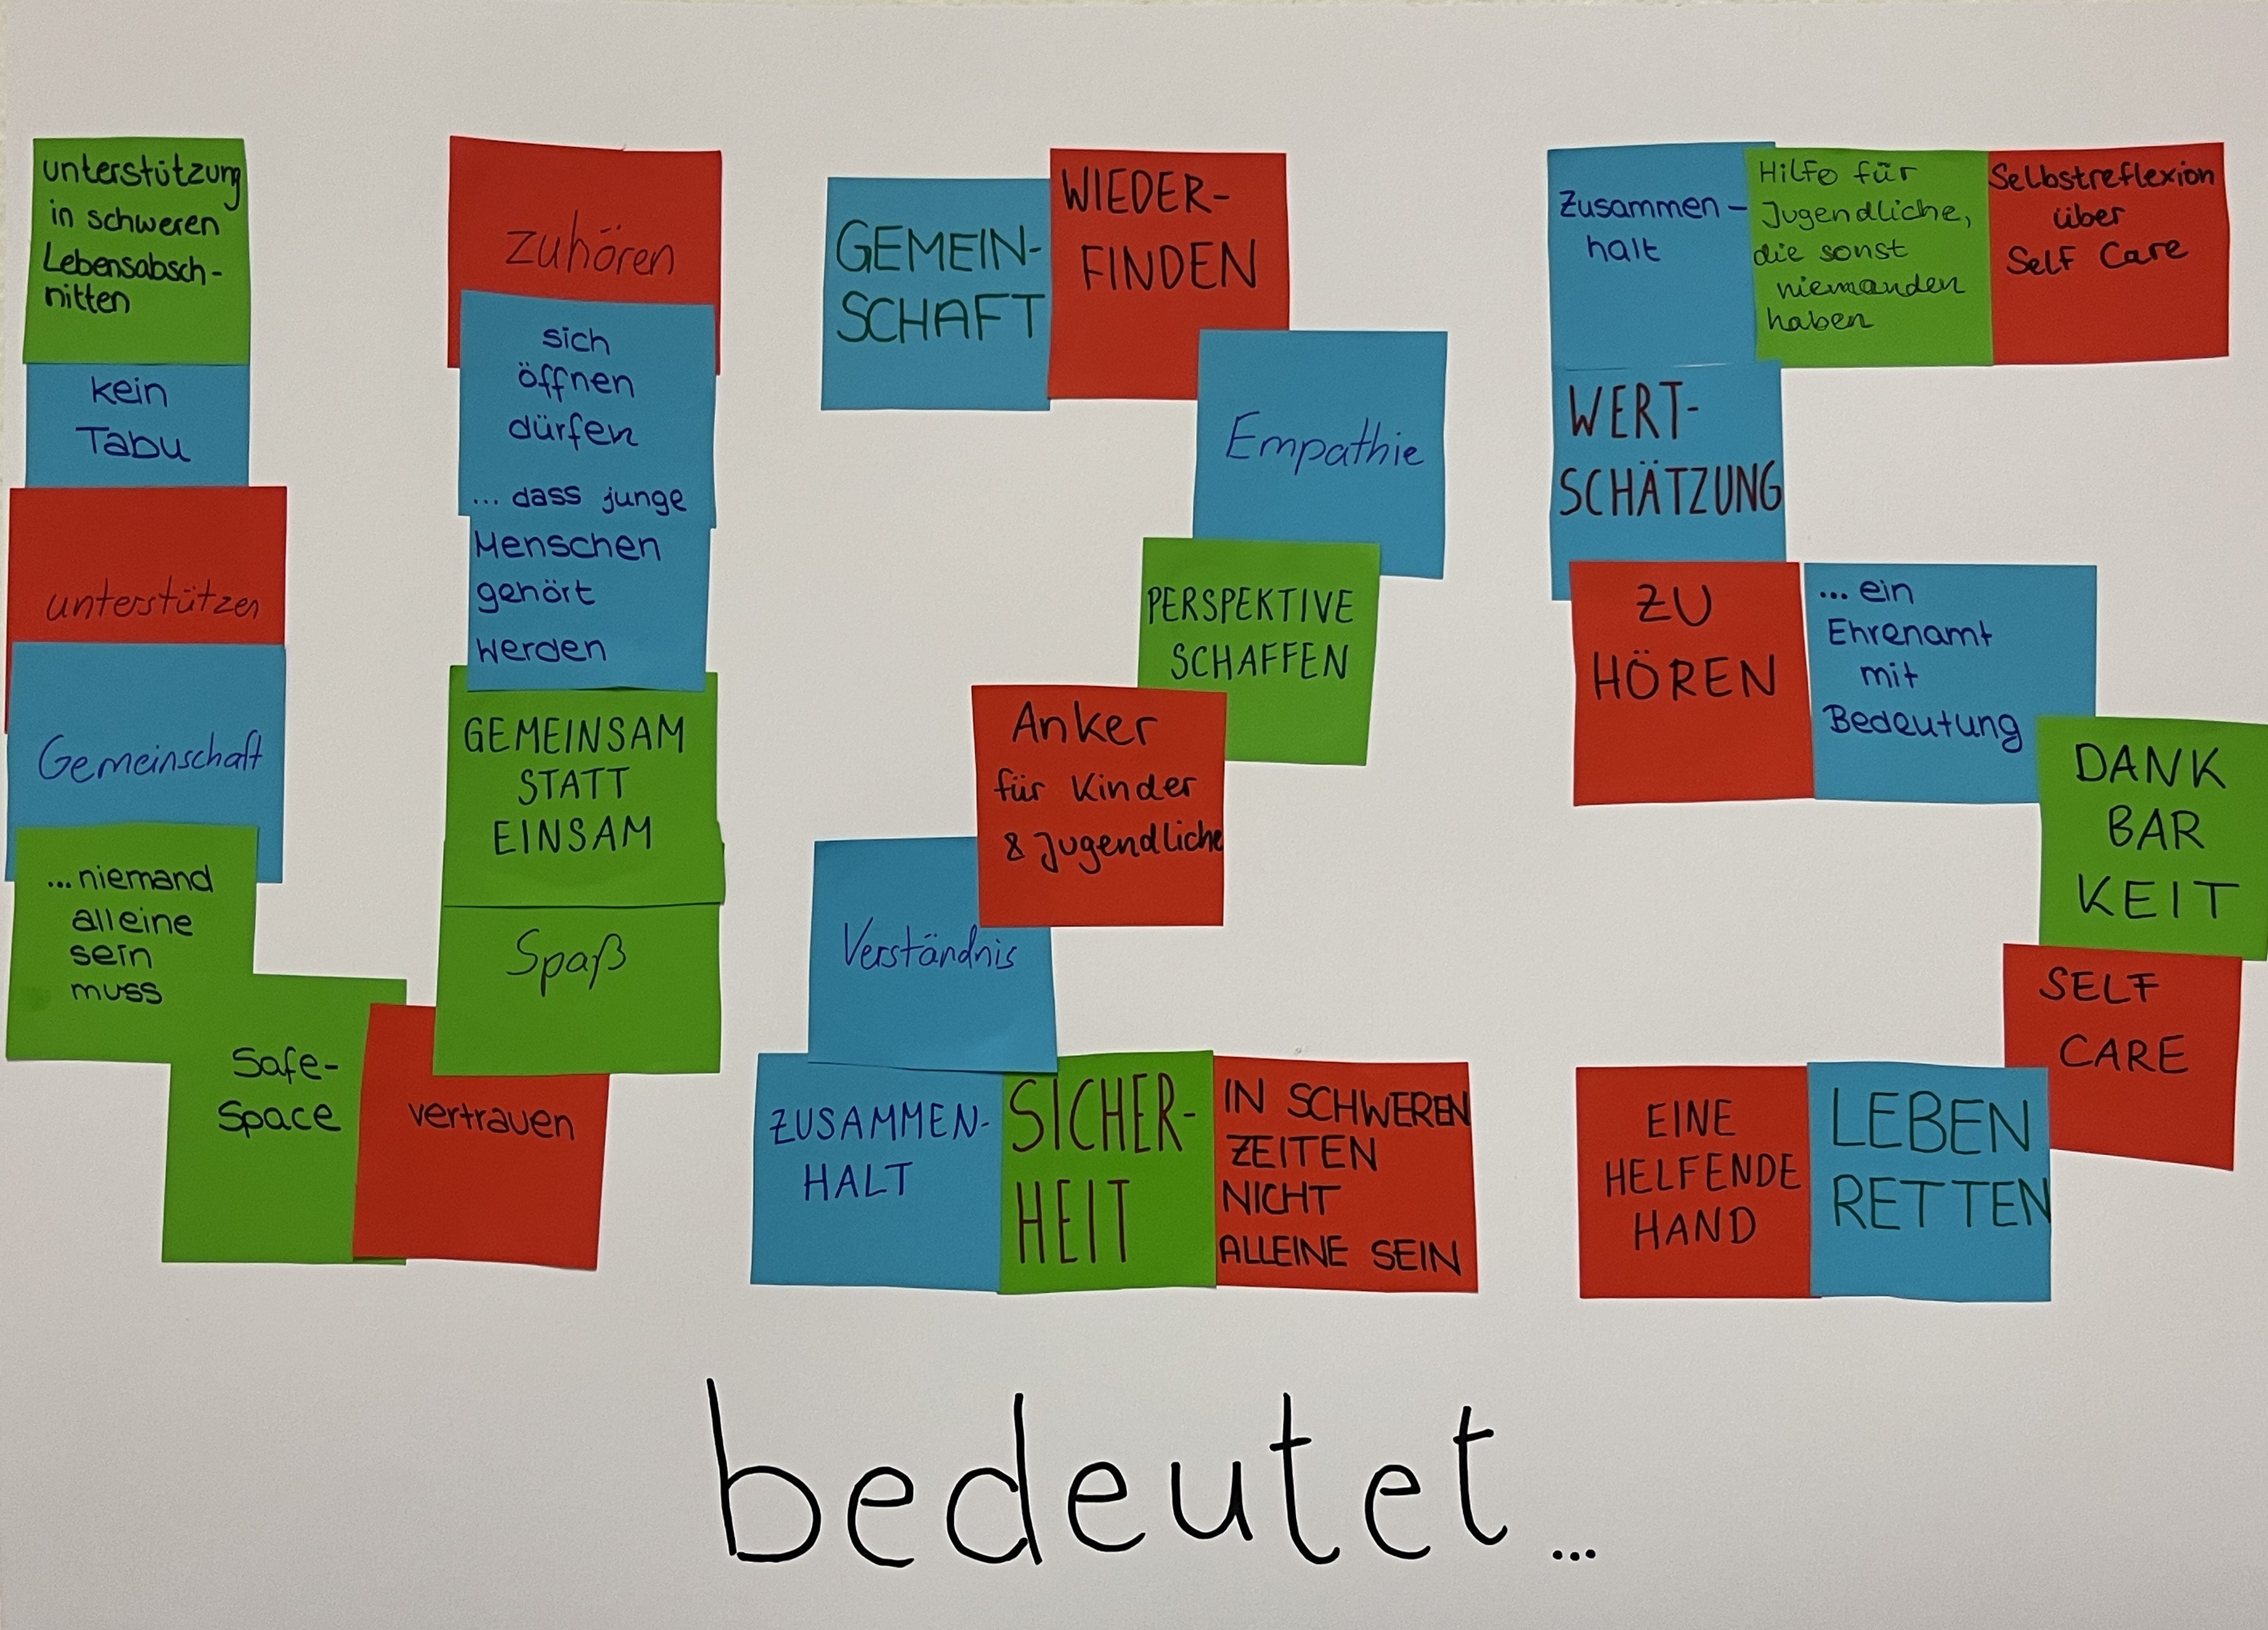 unterstützung
in schweren
Lebensabsch-
nitten
kein
Tabu
unterstützen
Gemeinschaft
...niemand
alleine
sein
muss
Safe-
Space
vertrauen
zuhören
sich
öffnen
dürfen
... dass junge
Menschen
gehört
werden
GEMEINSAM
STATT
EINSAM
Spaß
GEMEIN-
SCHAFT
WIEDER-
FINDEN
Empathie
PERSPEKTIVE
SCHAFFEN
Anker
für Kinder
& Jugendliche
Verständnis
ZUSAMMEN-
HALT
SICHER-
HEIT
IN SCHWEREN
ZEITEN
NICHT
ALLEINE SEIN
Zusammen-
halt
Hilfe für
Jugendliche,
die sonst
niemanden
haben
Selbstreflexion
über
Self Care
WERT-
SCHÄTZUNG
ZU
HÖREN
... ein
Ehrenamt
mit
Bedeutung
DANK
BAR
KEIT
SELF
CARE
EINE
HELFENDE
HAND
LEBEN
RETTEN
bedeutet...